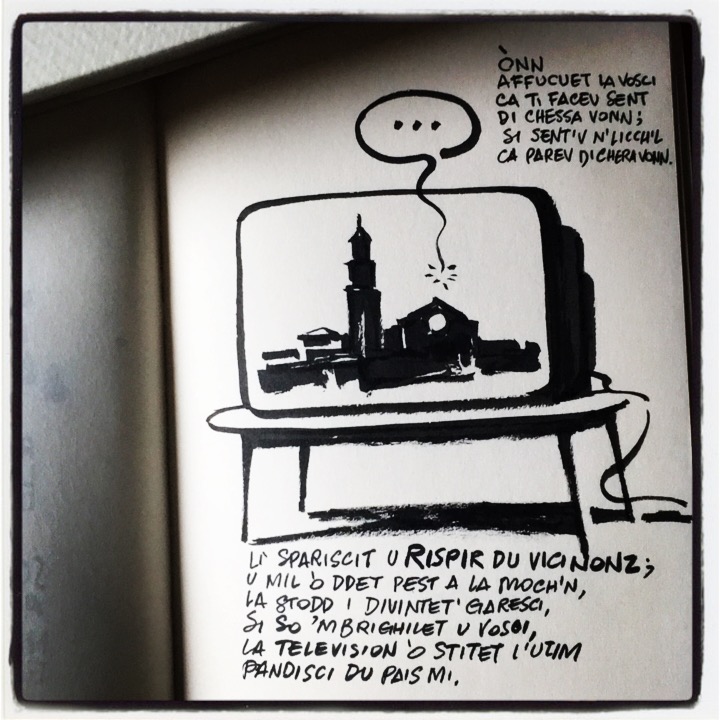 ÒNN
AFFUCUET LA VOSCI
CA TI FACEU SENT
DI CHESSA VONN;
SI SENT'V N'LICCH'L
CA PAREV DI CHERA VONN.
...
LÌ SPARISCIT U RISPIR DU VICINONZ;
U MIL 'O DDET PEST A LA MOCH'N,
LA STODD I DIVINTET' GARESCI,
SI SO 'MBRIGHILET U VOSCI,
LA TELEVISION 'O STITET L'UTIM
PANDISCI DU PAIS MI.